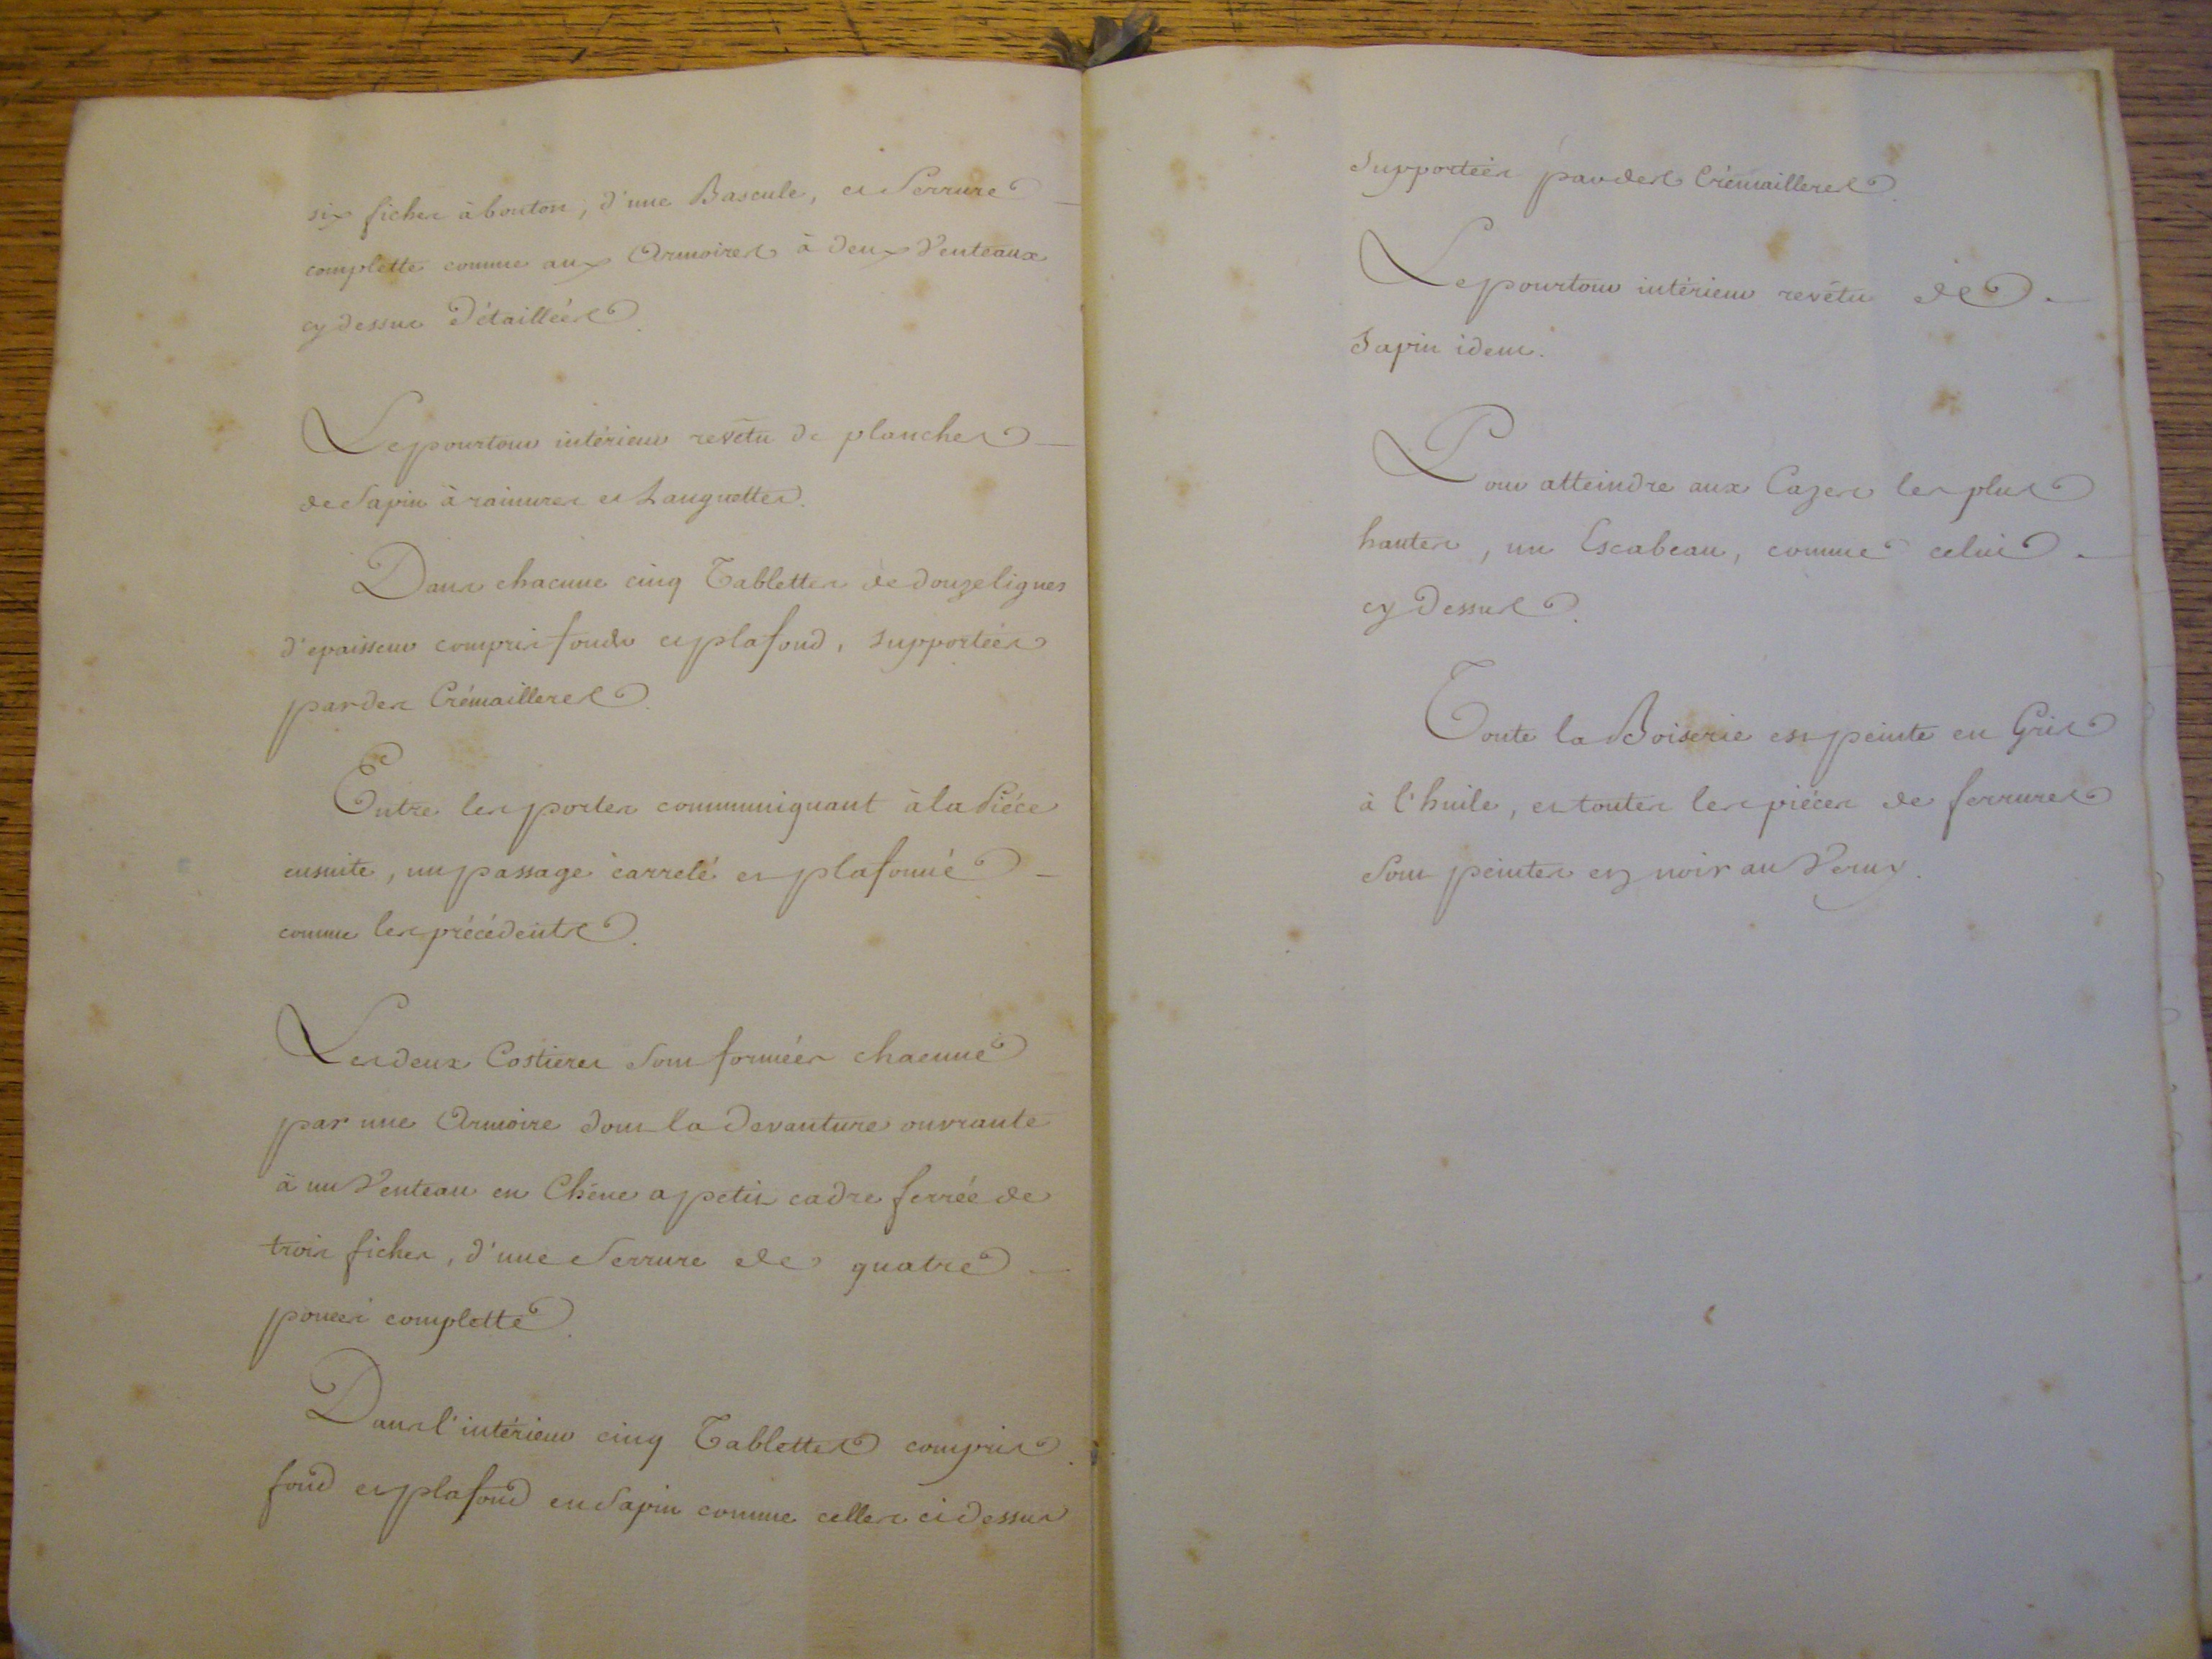 six fiches à bouton, d'une Bascule, et Serrure
complette comme aux Armoires à deux Venteaux
cy dessus Détaillées.
Le pourtour intérieur revêtu de planches
de Sapin à rainures et Languettes.
Dans chacune cinq Tablettes de douze lignes
d'epaisseur compris fonds et plafond, supportées
par des Crémailleres.
Entre les portes communiquant à la Piéce
ensuite, un passage carrelé et plafonné
comme les précédents.
Les deux Costieres sont formées chacune
par une Armoire dont la Devanture ouvrante
à un Venteau en Chêne a petit cadre ferrée de
trois fiches, d'une Serrure de quatre
pouces complette.
Dans l'intérieur cinq Tablettes compris
fond et plafond en Sapin comme celles ci dessus
supportées par des Crémailleres.
Le pourtour intérieur revêtu de
Sapin idem.
Pour atteindre aux Cazes les plus
hautes, un Escabeau, comme celui
cy Dessus.
Toute la Boiserie est peinte en Gris
à l'huile, et toutes les piéces de ferrures
sont peintes en noir au Verny.